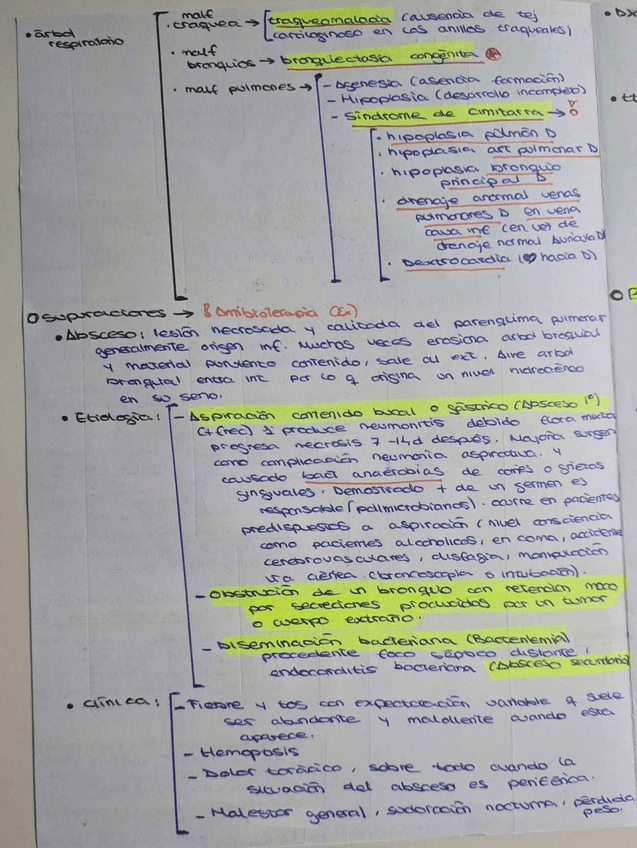 malf
• árbol respiratorio
• traquea → traqueomalacia (ausencia de tej
cartilaginoso en los anillos traqueales)
• malf
bronquios → bronquiectasia congénita
• malf pulmones → - Agenesia (asencia formación)
- Hipoplasia (desarrollo incompleto)
- Síndrome de cimitarra →
- hipoplasia pulmón D
• hipoplasia art pulmonar D
• hipoplasia bronquio
principal D
• drenaje anormal venas
pulmonares D en vena
cava inf (en vez de
drenaje normal Auricula D)
• Dextrocardia (♥ hacia D)
O supuraciones → Antibioterapia (Ex)
• Absceso: lesión necrosada y cavitada del parenquima pulmonar
generalmente origen inf. Muchas veces erosiona arbol broquial
y material purulento contenido, sale al ext. Aire arbol
bronquial entra int por lo q origina un nivel hidroaéreo
en su seno.
• Etiologia: - Aspiración contenido bucal o gástrico (Absceso 1º)
(+ frec) produce neumonitis debido flora mixta
progresa necrosis 7-14d después. Mayoría surgen
como complicación neumonia aspirativa. y
causado bact anaérobias de de grietas
gingivales. Demostrado + de un germen es
responsable (polimicrobianos). ocurre en pacientes
predispuestos a aspiración (nivel consciencia
como pacientes alcoholicos, en coma, accidente
cerebrovasculares, disfagia, manipulación
via aérea (broncoscopia o intubación).
- Obstrución de un bronquio con retencion moco
por secreciones producidas por un tumor
o cuerpo extraño.
- Diseminación bacteriana (Bacteriemia)
procedente foco séptico distante,
endocarditis bacteriana (Absceso secundario)
• Clínica: - Fiebre y tos con expectoración variable q suele
ser abundante y maloliente cuando esta
aparece.
- Hemoptosis
- Dolor torácico, sobre todo cuando la
situación del absceso es periférica.
- Malestar general, sudoración nocturna, pérdida
peso.